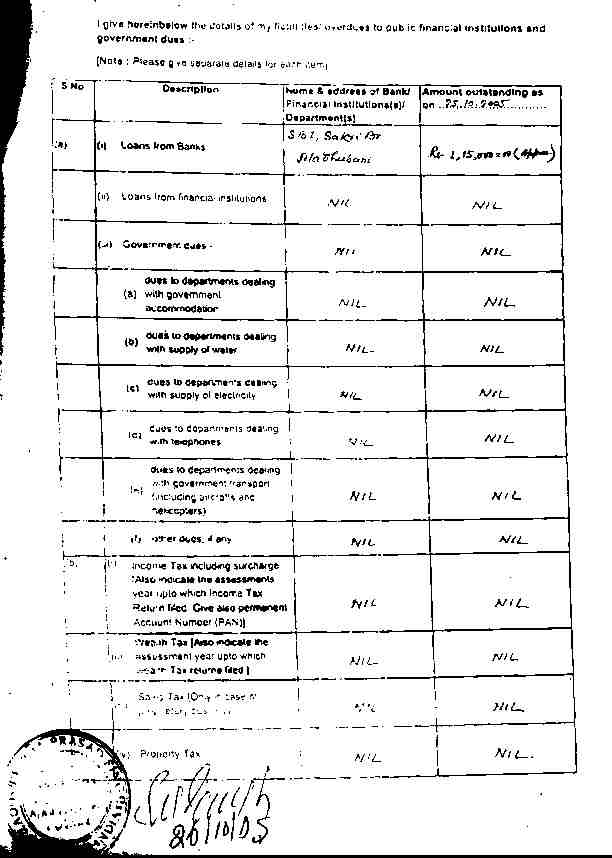 I give hereinbelow the details of my liabilities/ overdues to public financial institutions and
government dues :-
(Note : Please give separate details for each item)
S No Description Name & address of Bank/ Financial Institutions(s)/ Department(s) Amount outstanding as on ..25.10.2005...........
(a) (i) Loans from Banks
(ii) Loans from financial institutions NIL NIL
(iii) Government dues - NIL NIL
(a) dues to departments dealing with government accommodation NIL NIL
(b) dues to departments dealing with supply of water NIL NIL
(c) dues to departments dealing with supply of electricity NIL NIL
(d) dues to departments dealing with telephones NIL NIL
(e) dues to departments dealing with government transport (including aircrafts and helicopters) NIL NIL
(f) other dues, if any NIL NIL
b. (i) Income Tax including surcharge [Also indicate the assessments year upto which Income Tax Return filed. Give also permanent Account Number (PAN)] NIL NIL
(ii) Wealth Tax [Also indicate the assessment year upto which Wealth Tax returns filed ] NIL NIL
Sales Tax [Only in case of NIL NIL
(iv) Property Tax NIL NIL.
PRASAD
26/10/05